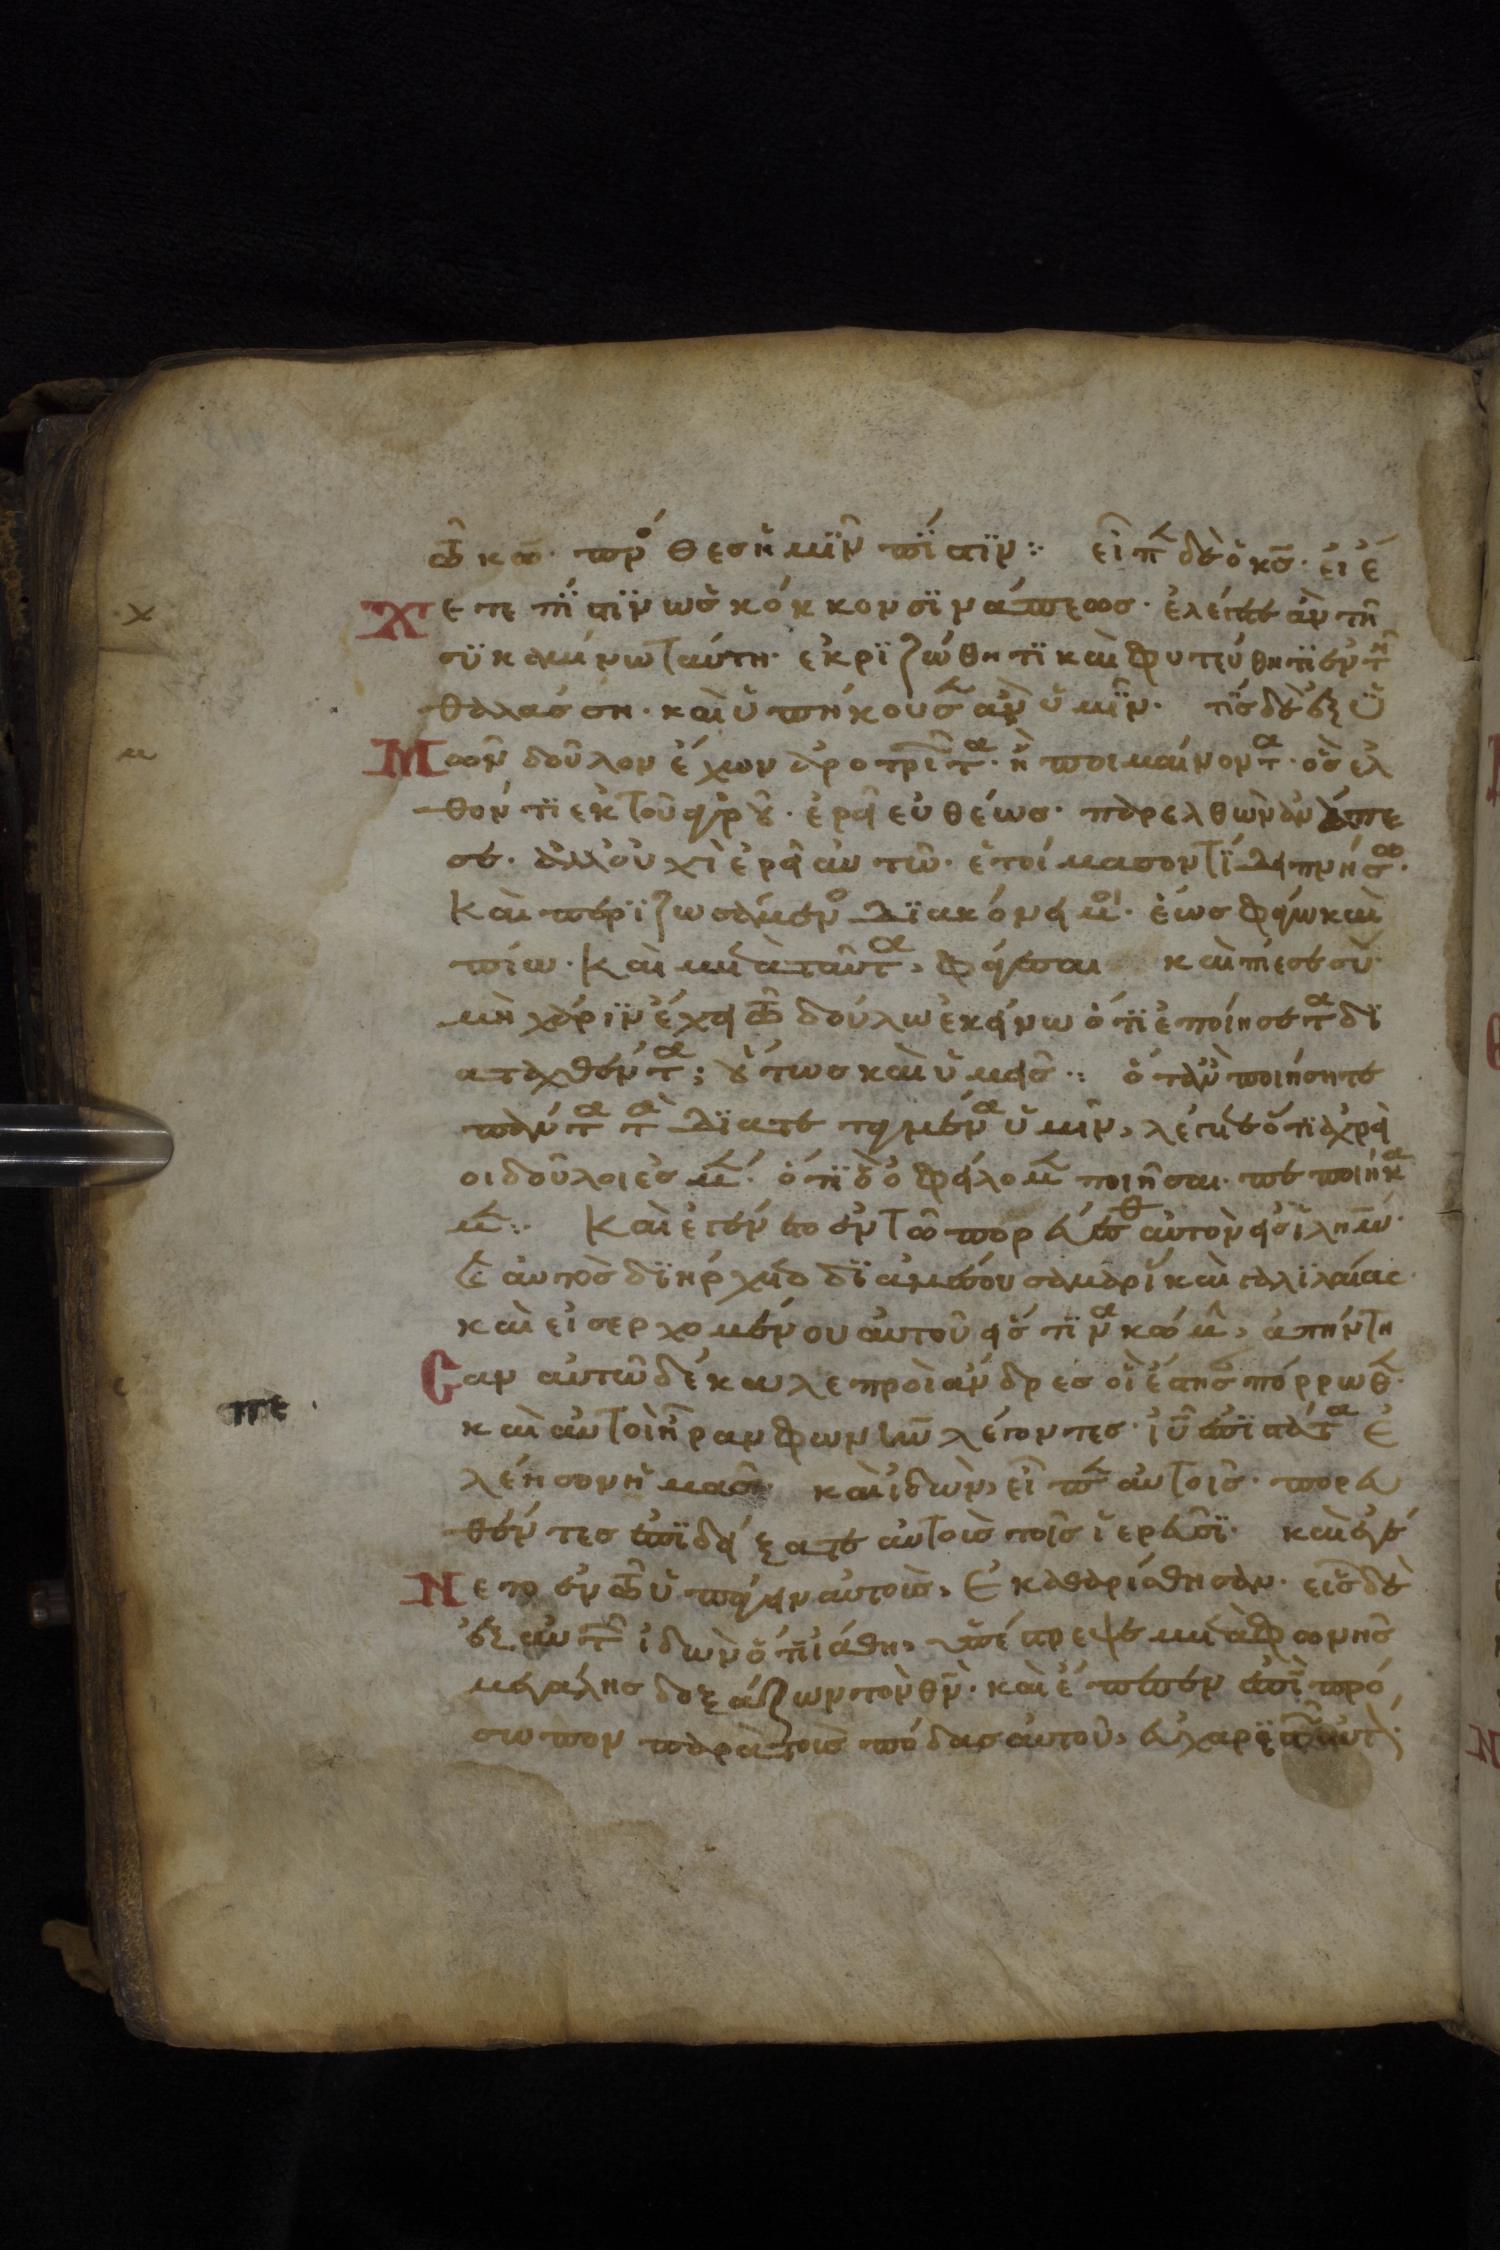 τῶ κω· πρό θεσ ἡμῖν πίστιν: εἶπ δὲ ὁ κσ· εἰ ἔ
Χετε πίστιν ὡς κόκκον σινάπεως· ἐλέγετε ἂν τῆ
συκαμίνω ταύτη· ἐκριζώθητι καὶ φυτεύθητι ἐν τῆ
θαλάσση· καὶ ὑπήκουσεν ἂν ὑμῖν· τίς δὲ ἐξ ὑ
Μῶν δοῦλον ἔχων ἀροτριῶντα· ἢ ποιμαίνοντα· ὃς ἐλ
θόντι ἐκ τοῦ ἀγροῦ· ἐρεῖ εὐθέως· παρελθὼν ἀνάπε
σε· ἀλλ οὐχὶ ἐρεῖ αὐτῶ· ἑτοίμασον τί δειπνήσω·
Καὶ περιζωσάμενο διακόνει μοι· ἕως φάγω καὶ
πίω· Καὶ μετὰ ταῦτα, φάγεσαι καὶ πίεσε σύ·
μὴ χάριν ἔχει τῶ δούλω ἐκείνω ὅτι ἐποίησε τὰ δι
αταχθέντα; οὕτως καὶ ὑμεῖς: ὅταν ποιήσητε
πάντα τὰ διατεταγμένα ὑμῖν, λέγετε ὅτι ἀχρεῖ
οι δοῦλοι ἐσμέν· ὅτι ὃ ὀφείλομεν ποιῆσαι· πεποιήκα
μεν: Καὶ ἐγένετο ἐν τῶ πορεύεσθ αὐτὸν εἰς ἰλημ·
καὶ αὐτὸς διήρχετο διὰ μέσου σαμαρί καὶ γαλιλαίας·
καὶ εἰσερχομένου αὐτοῦ εἴς τινα κώμην, ἀπήντη
Σαν αὐτῶ δέκα λεπροὶ ἄνδρες οἳ ἔστησ πόρρωθεν·
καὶ αὐτοὶ ἦραν φωνὴν λέγοντες· ἰῦ ἐπιστάτα ἐ
λέησον ἡμᾶς· καὶ ἰδὼν, εἶπεν αὐτοῖς· πορευ
θέντες ἐπιδείξατε αὐτοὺς τοῖς ἱερεῦσι· καὶ ἐγέ
Νετο ἐν τῶ ὑπάγειν αὐτοὺς, ἐκαθαρίσθησαν· εἷς δὲ
ἐξ αὐτῶν ἰδὼν ὅτι ἰάθη, ὑπέστρεψε μετὰ φωνῆς
μεγάλης δοξάζων τὸν θν· καὶ ἔπεσεν ἐπὶ πρό
σωπον παρὰ τοὺς πόδας αὐτοῦ, εὐχαριστῶν αὐτῶ·